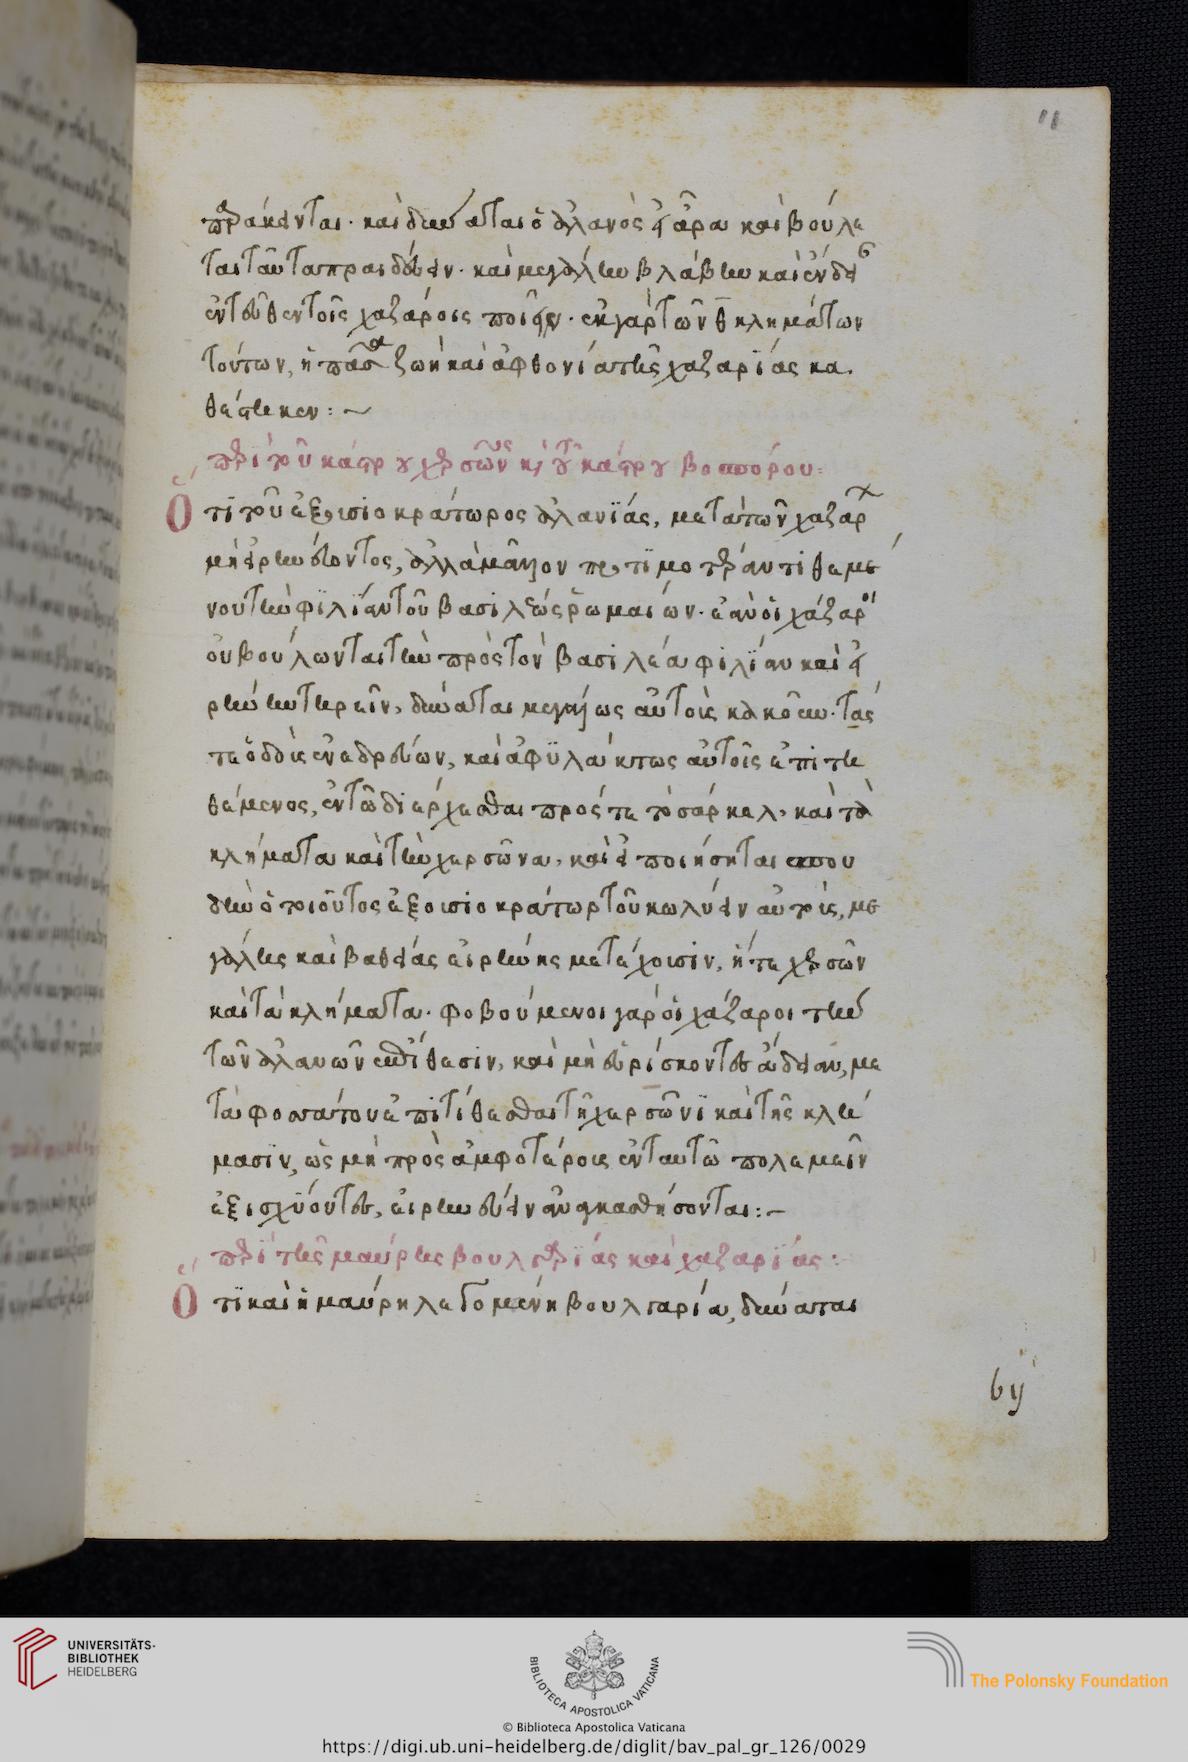 11
πράκεινται· καὶ δύναται ὁ ἀλανὸς εἰ ἄρα καὶ βούλε
ται ταῦτα πραιδεύειν· καὶ μεγάλην βλάβην καὶ ἔνδει
ἐντεῦθεν τοῖς χαζάροις ποιεῖν· ἐκ γὰρ τῶν θ κλημάτων
τούτων, ἡ πᾶσα ζωὴ καὶ ἀφθονία τῆς χαζαρίας κα
θέστηκεν: ~
περὶ τοῦ κάστρου χερσῶνος καὶ τοῦ κάστρου βοσπόρου:
Ὅτι τοῦ ἐξουσιοκράτωρος ἀλανίας, μετὰ τῶν χαζάρ
μὴ εἰρηνεύοντος, ἀλλὰ μᾶλλον προτιμοτέραν τιθεμέ
νου τὴν φιλίαν τοῦ βασιλέως ῥωμαίων· ἐὰν οἱ χάζαροι
οὐ βούλωνται τὴν πρὸς τὸν βασιλέα φιλίαν καὶ εἰ
ρήνην τηρεῖν, δύναται μεγάλως αὐτοὺς κακοῦν· τάς
τε ὁδοὺς ἐνεδρεύων, καὶ ἀφυλάκτως αὐτοῖς ἐπιτη
θέμενος, ἐν τῶ διέρχεσθαι πρός τε τὸ σάρκελ· καὶ τὰ
κλήματα καὶ τὴν χερσῶνα, καὶ εἰ ποιήσηται σπου
δὴν ὁ τοιοῦτος ἐξουσιοκράτωρ τοῦ κωλύειν αὐτούς, με
γάλης καὶ βαθείας εἰρήνης μετέχουσιν, ἥ τε χερσῶν
καὶ τὰ κλήματα· φοβούμενοι γὰρ οἱ χάζαροι τὴν
τῶν ἀλανῶν ἐπίθεσιν, καὶ μὴ εὑρίσκοντες ἄδειαν, με
τὰ φοσσάτου ἐπιτίθεσθαι τῆ χερσῶνι καὶ τῆς κλή
μασιν, ὡς μὴ πρὸς ἀμφοτέρους ἐν ταυτῶ πολεμεῖν
ἐξισχύοντες, εἰρηνεύειν ἀναγκασθήσονται: ~
περὶ τῆς μαύρης βουλγερίας καὶ χαζαρίας:
Ὅτι καὶ ἡ μαύρη λεγομένη βουλγαρία, δύναται
by
UNIVERSITÄTS-
BIBLIOTHEK
HEIDELBERG
BIBLIOTECA APOSTOLICA VATICANA
The Polonsky Foundation
© Biblioteca Apostolica Vaticana
https://digi.ub.uni-heidelberg.de/diglit/bav_pal_gr_126/0029